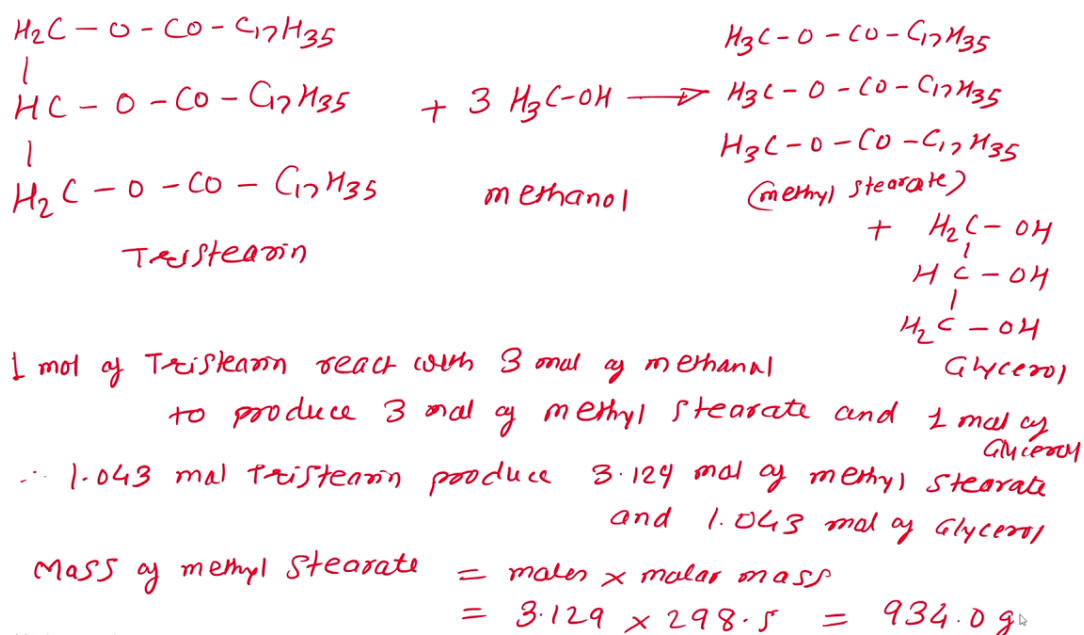 H₂C – O – CO – C₁₇H₃₅
|
HC – O – CO – C₁₇H₃₅ + 3 H₃C–OH → H₃C – O – CO – C₁₇H₃₅
|
H₂C – O – CO – C₁₇H₃₅
methanol
Tristearin
H₃C – O – CO – C₁₇H₃₅
H₃C – O – CO – C₁₇H₃₅
(methyl stearate)
+ H₂C – OH
|
HC – OH
|
H₂C – OH
Glycerol
1 mol of Tristearin react with 3 mol of methanol
to produce 3 mol of methyl stearate and 1 mol of
Glycerol
∴ 1.043 mol Tristearin produce 3.129 mol of methyl stearate
and 1.043 mol of Glycerol
Mass of methyl stearate = moles × molar mass
= 3.129 × 298.5 = 934.0 g